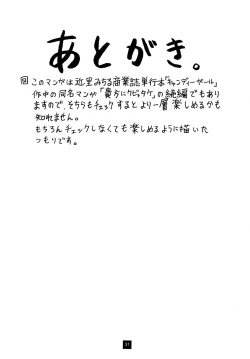 あとがき。
回このマンガは近里みちる商業誌単行本「キャンディーガール」
作中の同名マンガ「貴方にクビッタケ」の続編でもあり
ますので、そちらもチェックするとより一層楽しめるかも
知れません。
もちろんチェックしなくても楽しめるように描いた
つもりです。
37